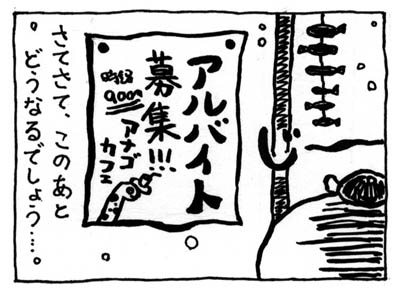 アルバイト
募集!!!
時給
900円
アナゴ
カフェ
さてさて、このあと
どうなるでしょう…。